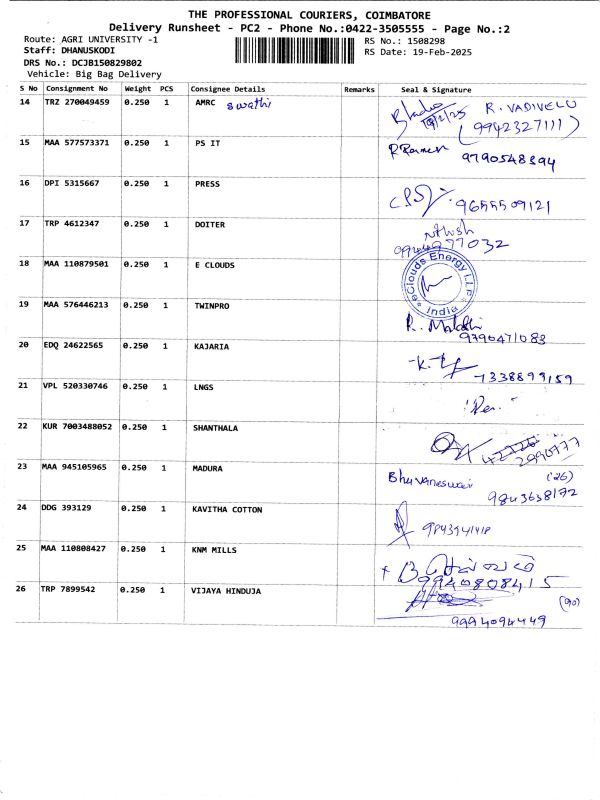 THE PROFESSIONAL COURIERS, COIMBATORE
Delivery Runsheet - PC2 - Phone No.:0422-3505555 - Page No.:2
Route: AGRI UNIVERSITY -1
RS No.: 1508298
Staff: DHANUSKODI
RS Date: 19-Feb-2025
DRS No.: DCJB150829802
Vehicle: Big Bag Delivery
S No Consignment No Weight PCS Consignee Details Remarks Seal & Signature
14 TRZ 270049459 0.250 1 AMRC swathi 19/2/25 R. VADIVELU
(9942327111)
15 MAA 577573371 0.250 1 PS IT 9790548394
16 DPI 5315667 0.250 1 PRESS 9655509121
17 TRP 4612347 0.250 1 DOITER
18 MAA 110879501 0.250 1 E CLOUDS eClouds Energy LLP India
19 MAA 576446213 0.250 1 TWINPRO
9790471083
20 EDQ 24622565 0.250 1 KAJARIA 7338899159
21 VPL 520330746 0.250 1 LNGS
22 KUR 7003488052 0.250 1 SHANTHALA
23 MAA 945105965 0.250 1 MADURA Bhuvaneswari (26)
9843638172
24 DDG 393129 0.250 1 KAVITHA COTTON 9843941418
25 MAA 110808427 0.250 1 KNM MILLS
9940808415
26 TRP 7899542 0.250 1 VIJAYA HINDUJA (90)
9994094449